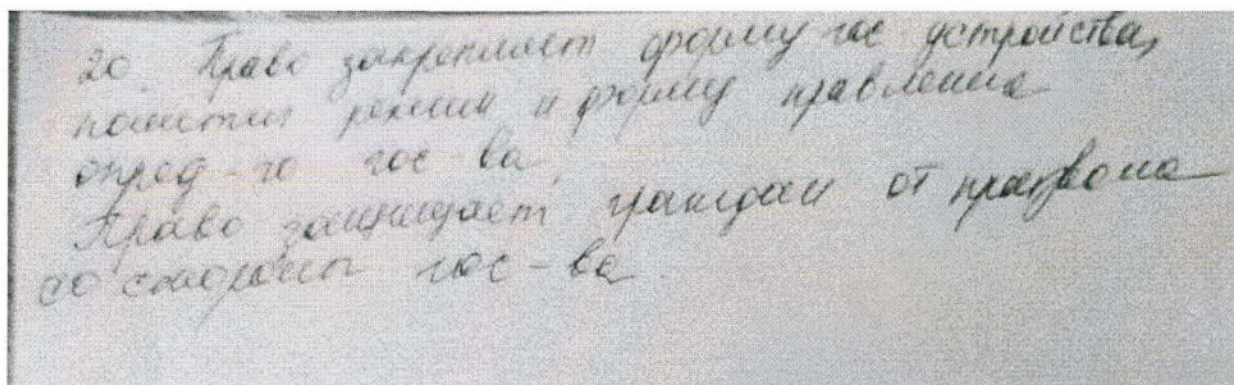 20. Право закрепляет форму гос устройства,
политич режим и форму правления
опред-го гос-ва.
Право защищает граждан от произвола
со стороны гос-ва.